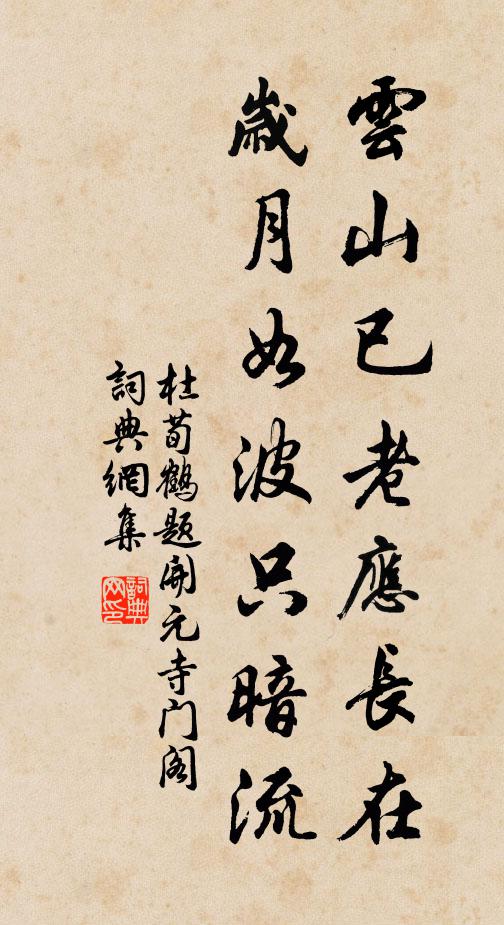 雲山已老應長在
歲月如波只暗流
杜荀鶴題開元寺门阁
詞典網集
詞典网印